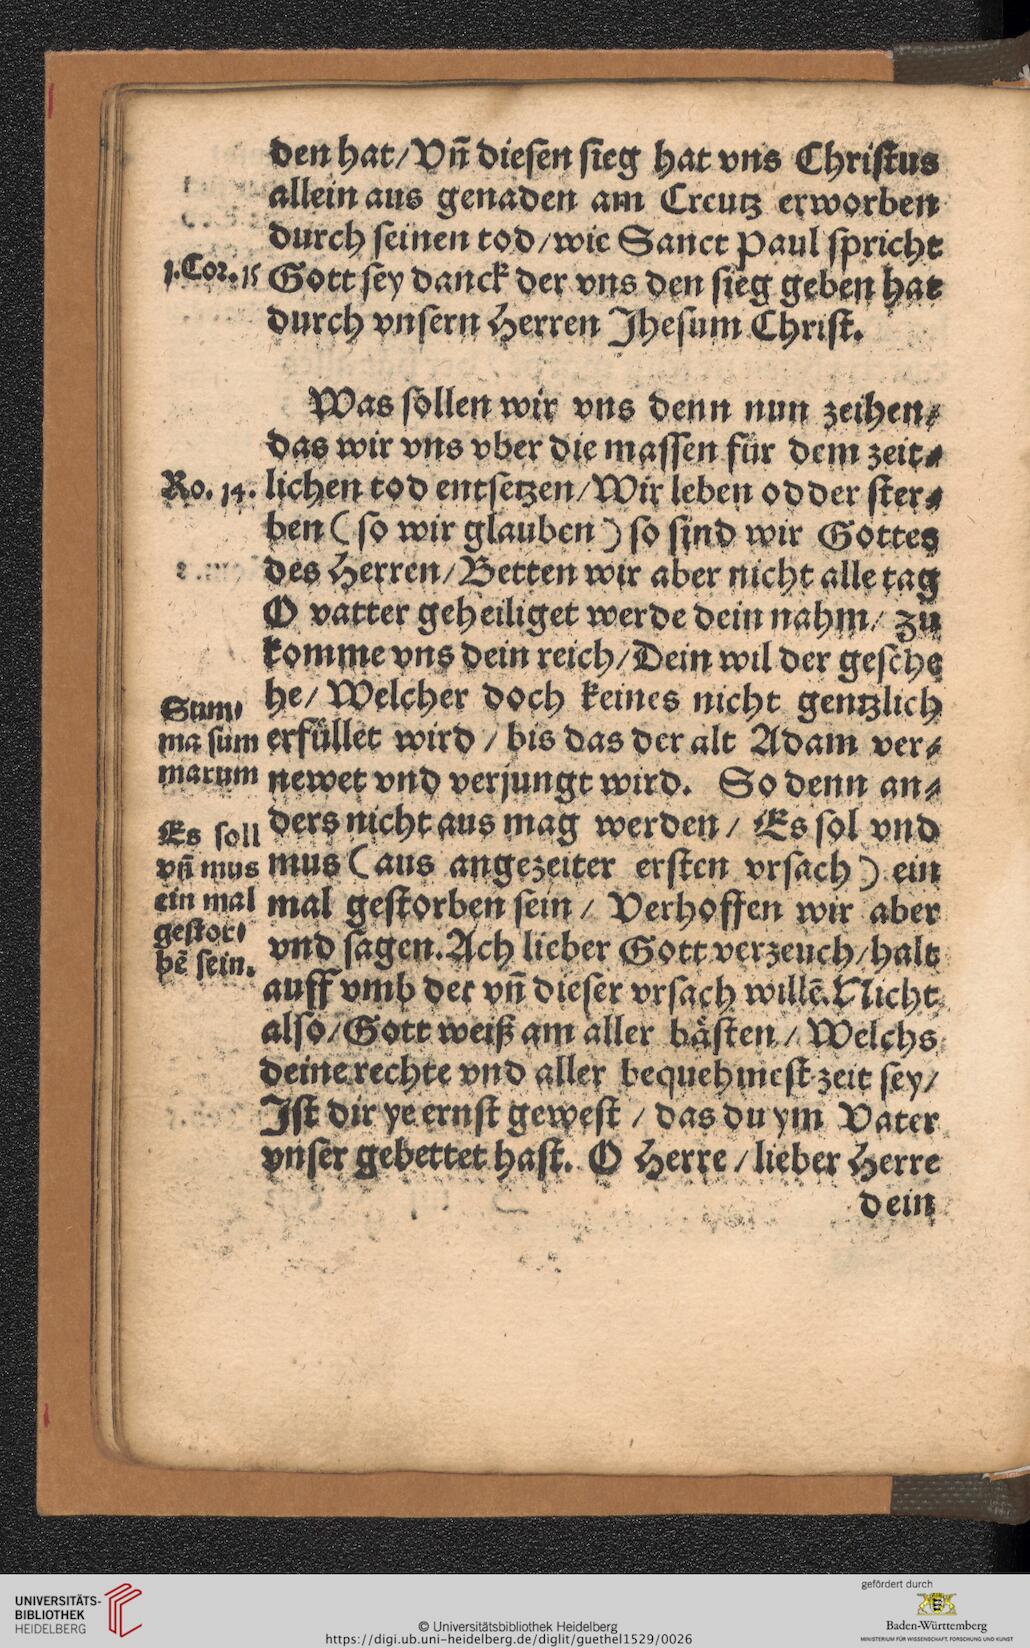 den hat/Vñ diesen sieg hat vns Christus
allein aus genaden am Creutz erworben
durch seinen tod/wie Sanct Paul spricht
1.Cor.15
Gott sey danck der vns den sieg geben hat
durch vnsern Herren Jhesum Christ.
Was sollen wir vns denn nun zeihen/
das wir vns vber die massen für dem zeit⸗
Ro. 14.
lichen tod entsetzen/Wir leben odder ster⸗
ben (so wir glauben) so sind wir Gottes
des Herren/Betten wir aber nicht alle tag
O vatter geheiliget werde dein nahm/ zu
komme vns dein reich/Dein wil der gesche
he/ Welcher doch keines nicht gentzlich
erfüllet wird / bis das der alt Adam ver⸗
newet vnd verjungt wird. So denn an⸗
ders nicht aus mag werden / Es sol vnd
mus (aus angezeiter ersten vrsach) ein
mal gestorben sein / Verhoffen wir aber
vnd sagen. Ach lieber Gott verzeuch/halt
auff vmb der vñ dieser vrsach willē. Nicht
also/Gott weiß am aller bästen / Welchs
deine rechte vnd aller bequehmest zeit sey/
Ist dir ye ernst gewest / das du ym Vater
vnser gebettet hast. O Herre /lieber Herre
dein
Sum⸗
ma sum
marum
Es soll
vñ mus
ein mal
gestor⸗
bē sein.
UNIVERSITÄTS-
BIBLIOTHEK
HEIDELBERG
© Universitätsbibliothek Heidelberg
https://digi.ub.uni-heidelberg.de/diglit/guethel1529/0026
gefördert durch
Baden-Württemberg
MINISTERIUM FÜR WISSENSCHAFT, FORSCHUNG UND KUNST